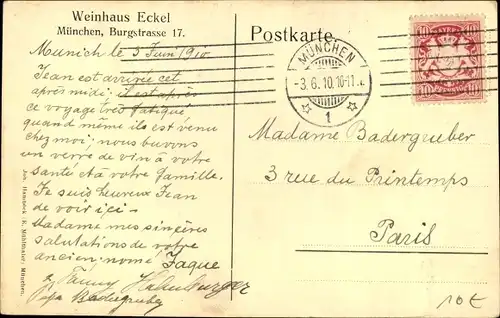 Weinhaus Eckel
München, Burgstrasse 17.
Postkarte.
BAYERN
10 10
MÜNCHEN
-3.6.10.10-11
1
Munich le 5 Juin 1910
Jean est arrivée cet
après midi: il est après
ce voyage très fatigué
quand même ils est venu
chez moi: nous buvons
un verre de vin à votre
santé et à votre famille.
Je suis heureux Jean
de voir içi -
Madame mes sinçères
salutations de votre
ançien nomé Jaque
Fanny
Badergruber
Madame Badergruber
3 rue du Printemps
Paris
Joh. Hambock (E. Mühlthaler), München.
10€